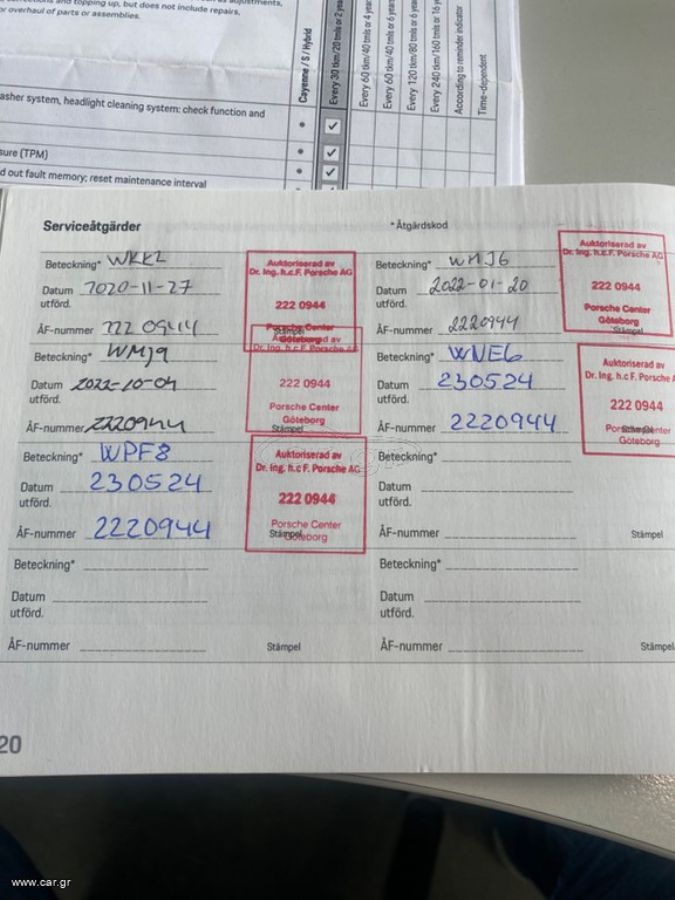 corrections and topping up, but does not include repairs,
or overhaul of parts or assemblies.
Cayenne / S / Hybrid
Every 30 tkm/20 tmls or 2
Every 60 tkm/40 tmls or 4 years
Every 60 tkm/40 tmls or 6 years
Every 120 tkm/80 tmls or 6
Every 240 tkm/160 tmls or 16
According to reminder indicator
Time-dependent
washer system, headlight cleaning system: check function and
(TPM)
out fault memory; reset maintenance interval
Serviceåtgärder
* Åtgärdskod
Beteckning* WKKL
Datum 2020-11-27
utförd.
ÅF-nummer 222 0944
Stämpel
Auktoriserad av
Dr. Ing. h.c.F. Porsche AG
222 0944
Porsche Center
Göteborg
Beteckning* WMJ6
Datum 2022-01-20
utförd.
ÅF-nummer 2220944
Stämpel
Auktoriserad av
Dr. Ing. h.c.F. Porsche AG
222 0944
Porsche Center
Göteborg
Beteckning* WMJ9
Datum 2022-10-04
utförd.
ÅF-nummer 2220944
Stämpel
Auktoriserad av
Dr. Ing. h.c.F. Porsche AG
222 0944
Porsche Center
Göteborg
Beteckning* WNE6
Datum 230524
utförd.
ÅF-nummer 2220944
Stämpel
Auktoriserad av
Dr. Ing. h.c F. Porsche A
222 0944
Porsche Center
Göteborg
Beteckning* WPF8
Datum 230524
utförd.
ÅF-nummer 2220944
Stämpel
Auktoriserad av
Dr. Ing. h.c F. Porsche AG
222 0944
Porsche Center
Göteborg
Beteckning*
Datum
utförd.
ÅF-nummer
Stämpel
Beteckning*
Datum
utförd.
ÅF-nummer
Stämpel
Beteckning*
Datum
utförd.
ÅF-nummer
Stämpel
20
www.car.gr